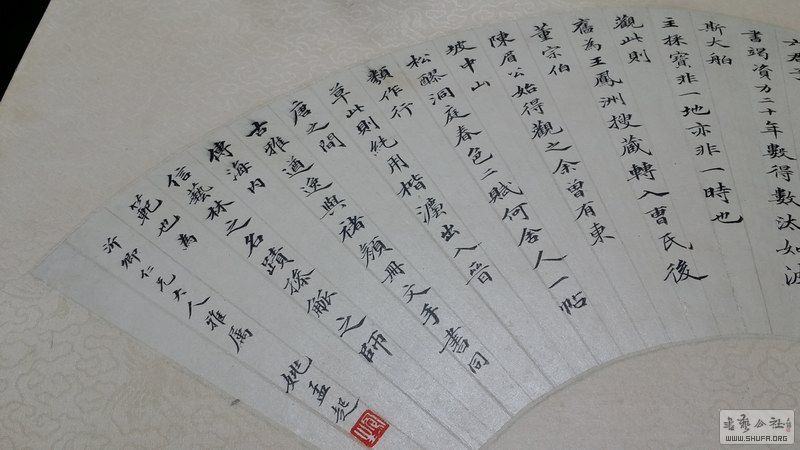 書竭資力二十年數得數汰如波
斯大舶
主採寶非一地亦非一時也
觀此則
舊為王鳳洲搜藏轉入曹氏後
董宗伯
陳眉公始得觀之余曾有東
坡中山
松醪洞庭春色二賦何舍人一帖
類作行
草此則純用楷灋出入晉
唐之間
古雅遒逸與褚顏冊文手書同
傳海內
信藝林之名蹟操觚之師
範也為
沂卿仁兄大人雅屬
姚孟起
書藝公社
WWW.SHUFA.ORG